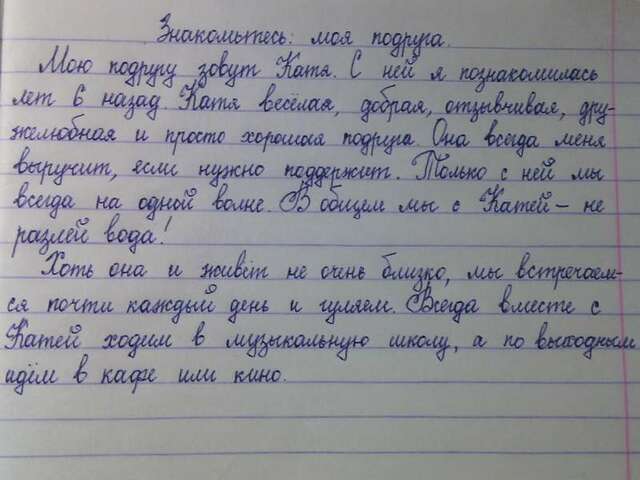 Знакомьтесь: моя подруга.
Мою подругу зовут Катя. С ней я познакомилась
лет 6 назад. Катя весёлая, добрая, отзывчивая, дру-
желюбная и просто хорошая подруга. Она всегда меня
выручит, если нужно поддержит. Только с ней мы
всегда на одной волне. В общем мы с Катей - не
разлей вода!
Хоть она и живёт не очень близко, мы встречаем-
ся почти каждый день и гуляем. Всегда вместе с
Катей ходим в музыкальную школу, а по выходным
идём в кафе или кино.